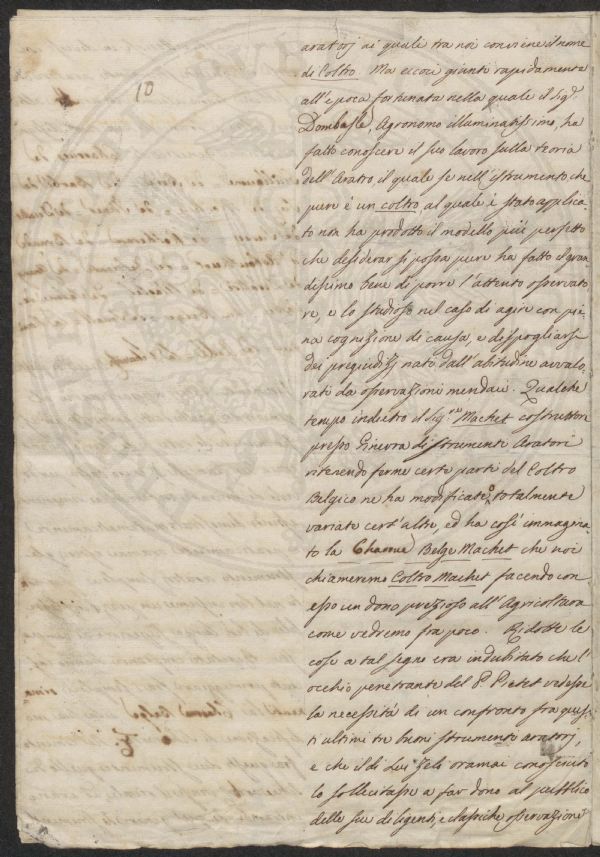 10
aratorj ai quale tra noi conviene il nome
di Coltro. Ma eccoci giunti rapidamente
all'epoca fortunata nella quale il Sigr.
Dombasle, Agronomo illuminatissimo, ha
fatto conoscere il suo lavoro sulla teoria
dell'Aratro, il quale se nell'istrumento che
pure è un coltro, al quale è stato applica
to non ha prodotto il modello più perfetto
che desiderar si possa pure ha fatto il gran
dissimo bene di porre l'attento osservato
re, e lo studioso nel caso di agire con pie
na cognizione di causa, e di spogliarsi
dei pregiudizj nati dall'abitudine avvalo
rati da osservazioni mendaci. Qualche
tempo indietro il Sigre Machet costruttore
presso Ginevra di strumenti Aratori
ritenendo ferme certe parti del Coltro
Belgico ne ha modificate, o totalmente
variate cert'altre, ed ha così immagina
to la Charrue Belge Machet che noi
chiameremo Coltro Machet facendo con
esso un dono prezioso all'Agricoltura
come vedremo fra poco. Ridotte le
cose a tal segno era indubitato che l'
occhio penetrante del P. Pictet vedesse
la necessità di un confronto fra ques
ti ultimi tre buoni strumento aratorj,
e che il di Lui zelo oramai conosciuto
lo sollecitasse a far dono al pubblico
delle sue diligenti, e classiche osservazione